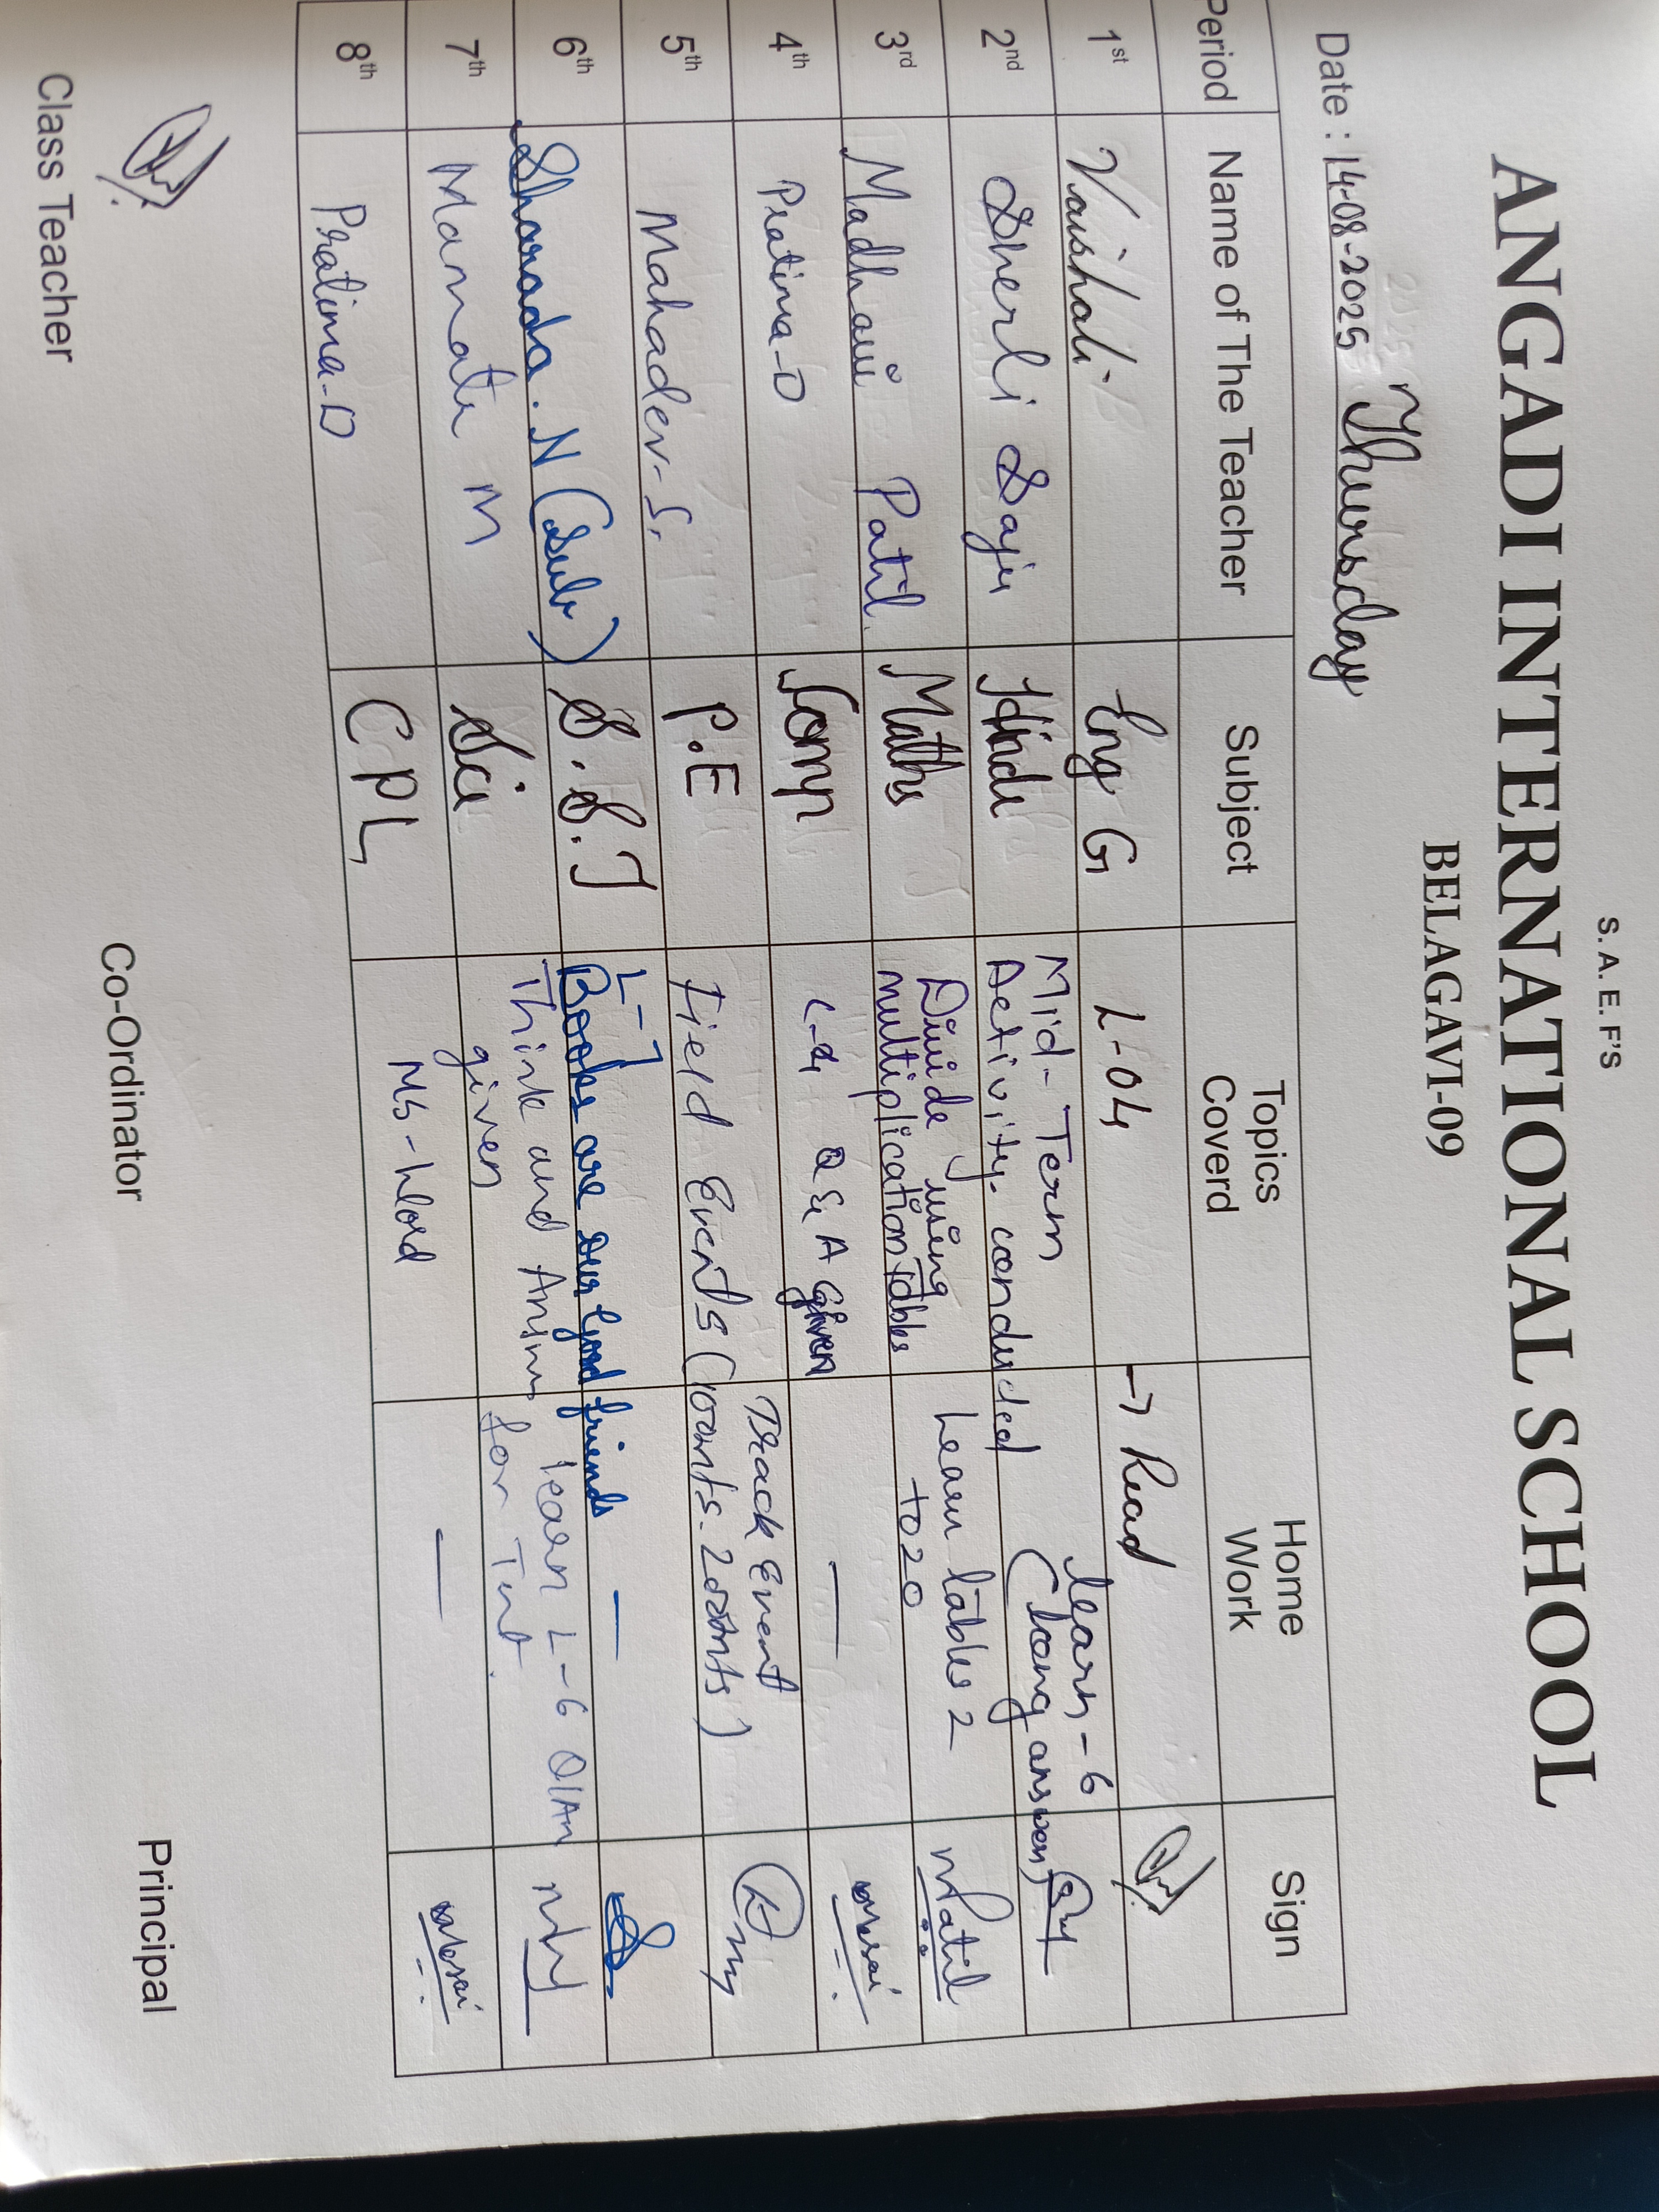 S. A. E. F'S
ANGADI INTERNATIONAL SCHOOL
BELAGAVI-09
Date : 14-08-2025 Thursday
Period Name of The Teacher Subject Topics Coverd Home Work Sign
1st Vaishali-B Eng G L-04 → Read
2nd Sherli Saju Hindi Mid-Term Activity conducted learn-6 (Long answer)
3rd Madhavi Patil Maths Divide using multiplication tables Learn tables 2 to 20 MPatil
4th Pratima-D Comp L-4 Q & A Given —
5th Mahadev-S. P.E Field Events Track Event (100mts-200mts)
6th Sharada.N (Sub) S.S.T L-7 Books are our good friends —
7th Mamata M Sci Think and Answ given learn L-6 Q/An for Test.
8th Pratima-D CPL MS-Word —
Class Teacher Co-Ordinator Principal